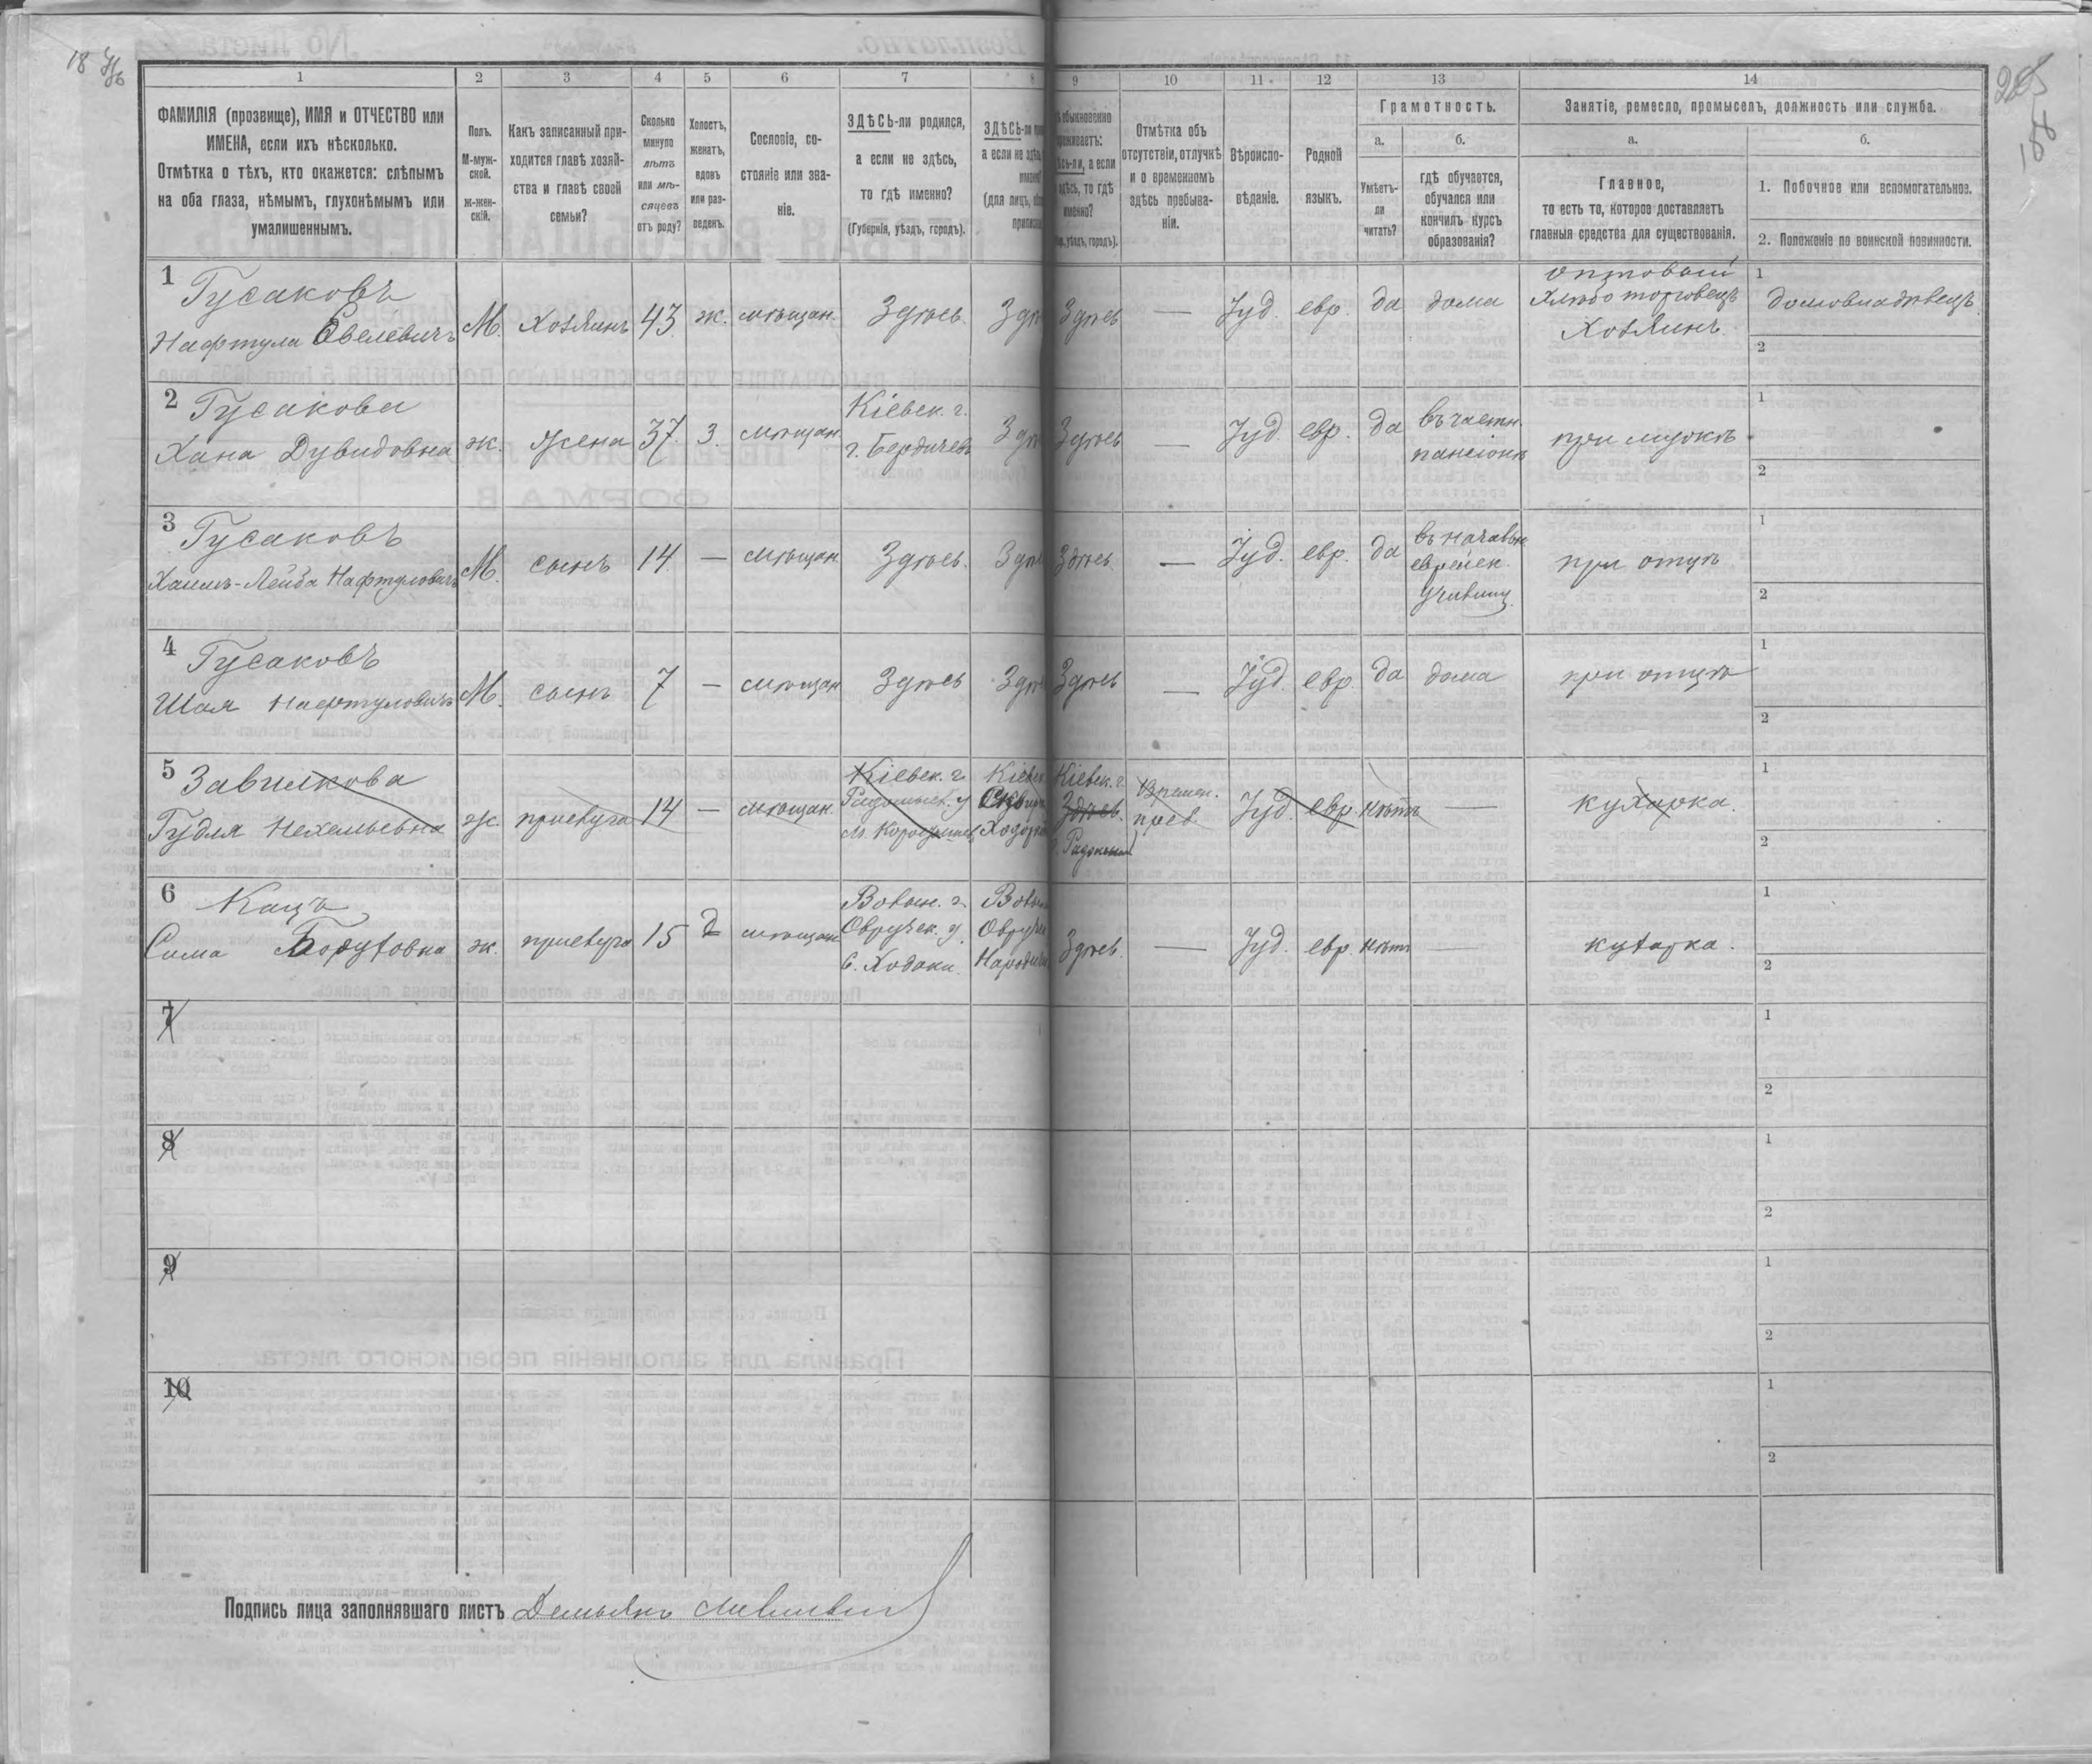 18
1 2 3 4 5 6 7 8 9 10 11 12 13 14
ФАМИЛІЯ (прозвище), ИМЯ и ОТЧЕСТВО или
ИМЕНА, если ихъ нѣсколько.
Отмѣтка о тѣхъ, кто окажется: слѣпымъ
на оба глаза, нѣмымъ, глухонѣмымъ или
умалишеннымъ.
Полъ.
М-муж-
ской.
ж-жен-
скій.
Какъ записанный при-
ходится главѣ хозяй-
ства и главѣ своей
семьи?
Сколько
минуло
лѣтъ
или мѣ-
сяцевъ
отъ роду?
Холостъ,
женатъ,
вдовъ
или раз-
веденъ.
Сословіе, со-
стояніе или зва-
ніе.
ЗДѢСЬ-ли родился,
а если не здѣсь,
то гдѣ именно?
(Губернія, уѣздъ, городъ).
ЗДѢСЬ-ли
а если не
(для лицъ,
обыкновенно
а если
здѣсь, то гдѣ
именно?
уѣздъ, городъ).
Отмѣтка объ
отсутствіи, отлучкѣ
и о временномъ
здѣсь пребыва-
ніи.
Вѣроиспо-
вѣданіе.
Родной
языкъ.
Грамотность.
а.
Умѣетъ-
ли
читать?
б.
гдѣ обучается,
обучался или
кончилъ курсъ
образованія?
Занятіе, ремесло, промыселъ, должность или служба.
а.
Главное,
то есть то, которое доставляетъ
главныя средства для существованія.
б.
1. Побочное или вспомогательное.
2. Положеніе по воинской повинности.
1 Гусаковъ
Нафтула Евелевичъ М. Хозяинъ 43 ж. мѣщан. Здѣсь. Здѣ Здѣсь — Іуд. евр. да дома
оптовый
Хлѣботорговецъ
Хозяинъ
1 домовладѣлецъ.
2
2 Гусакова
Хана Дувидовна ж. жена 37. з. мѣщан.
Кіевск. г.
г. Бердичевъ
Здѣ Здѣсь — Іуд. евр. да
въ частн.
пансіонѣ
при мужѣ
1
2
3 Гусаковъ
Хаимъ-Лейба Нафтуловичъ М. сынъ 14 — мѣщан. Здѣсь. Здѣ Здѣсь — Іуд. евр. да
въ начальн.
еврейск.
училищ.
при отцѣ
1
2
4 Гусаковъ
Шая Нафтуловичъ М. сынъ 7 — мѣщан. Здѣсь Здѣ Здѣсь — Іуд. евр. да дома при отцѣ
1
2
5 Завилкова
Гудля Нехемьевна ж. прислуга 14 — мѣщан.
Кіевск. г.
Радомысл. у
м. Коростышев.
Кіевск
Сквир
Ходорк
Кіевск. г.
Здѣсь.
г. Радомысл
Времен.
преб.
Іуд. евр. нѣтъ — кухарка.
1
2
6 Кацъ
Сима Боруховна ж. прислуга 15 д мѣщан.
Волын. г.
Овручск. у.
с. Ходаки.
Волын
Овруч
Народич
Здѣсь. — Іуд. евр. нѣтъ — кухарка.
1
2
7
1
2
8
1
2
9
1
2
10
1
2
Подпись лица заполнявшаго листъ Демьянъ